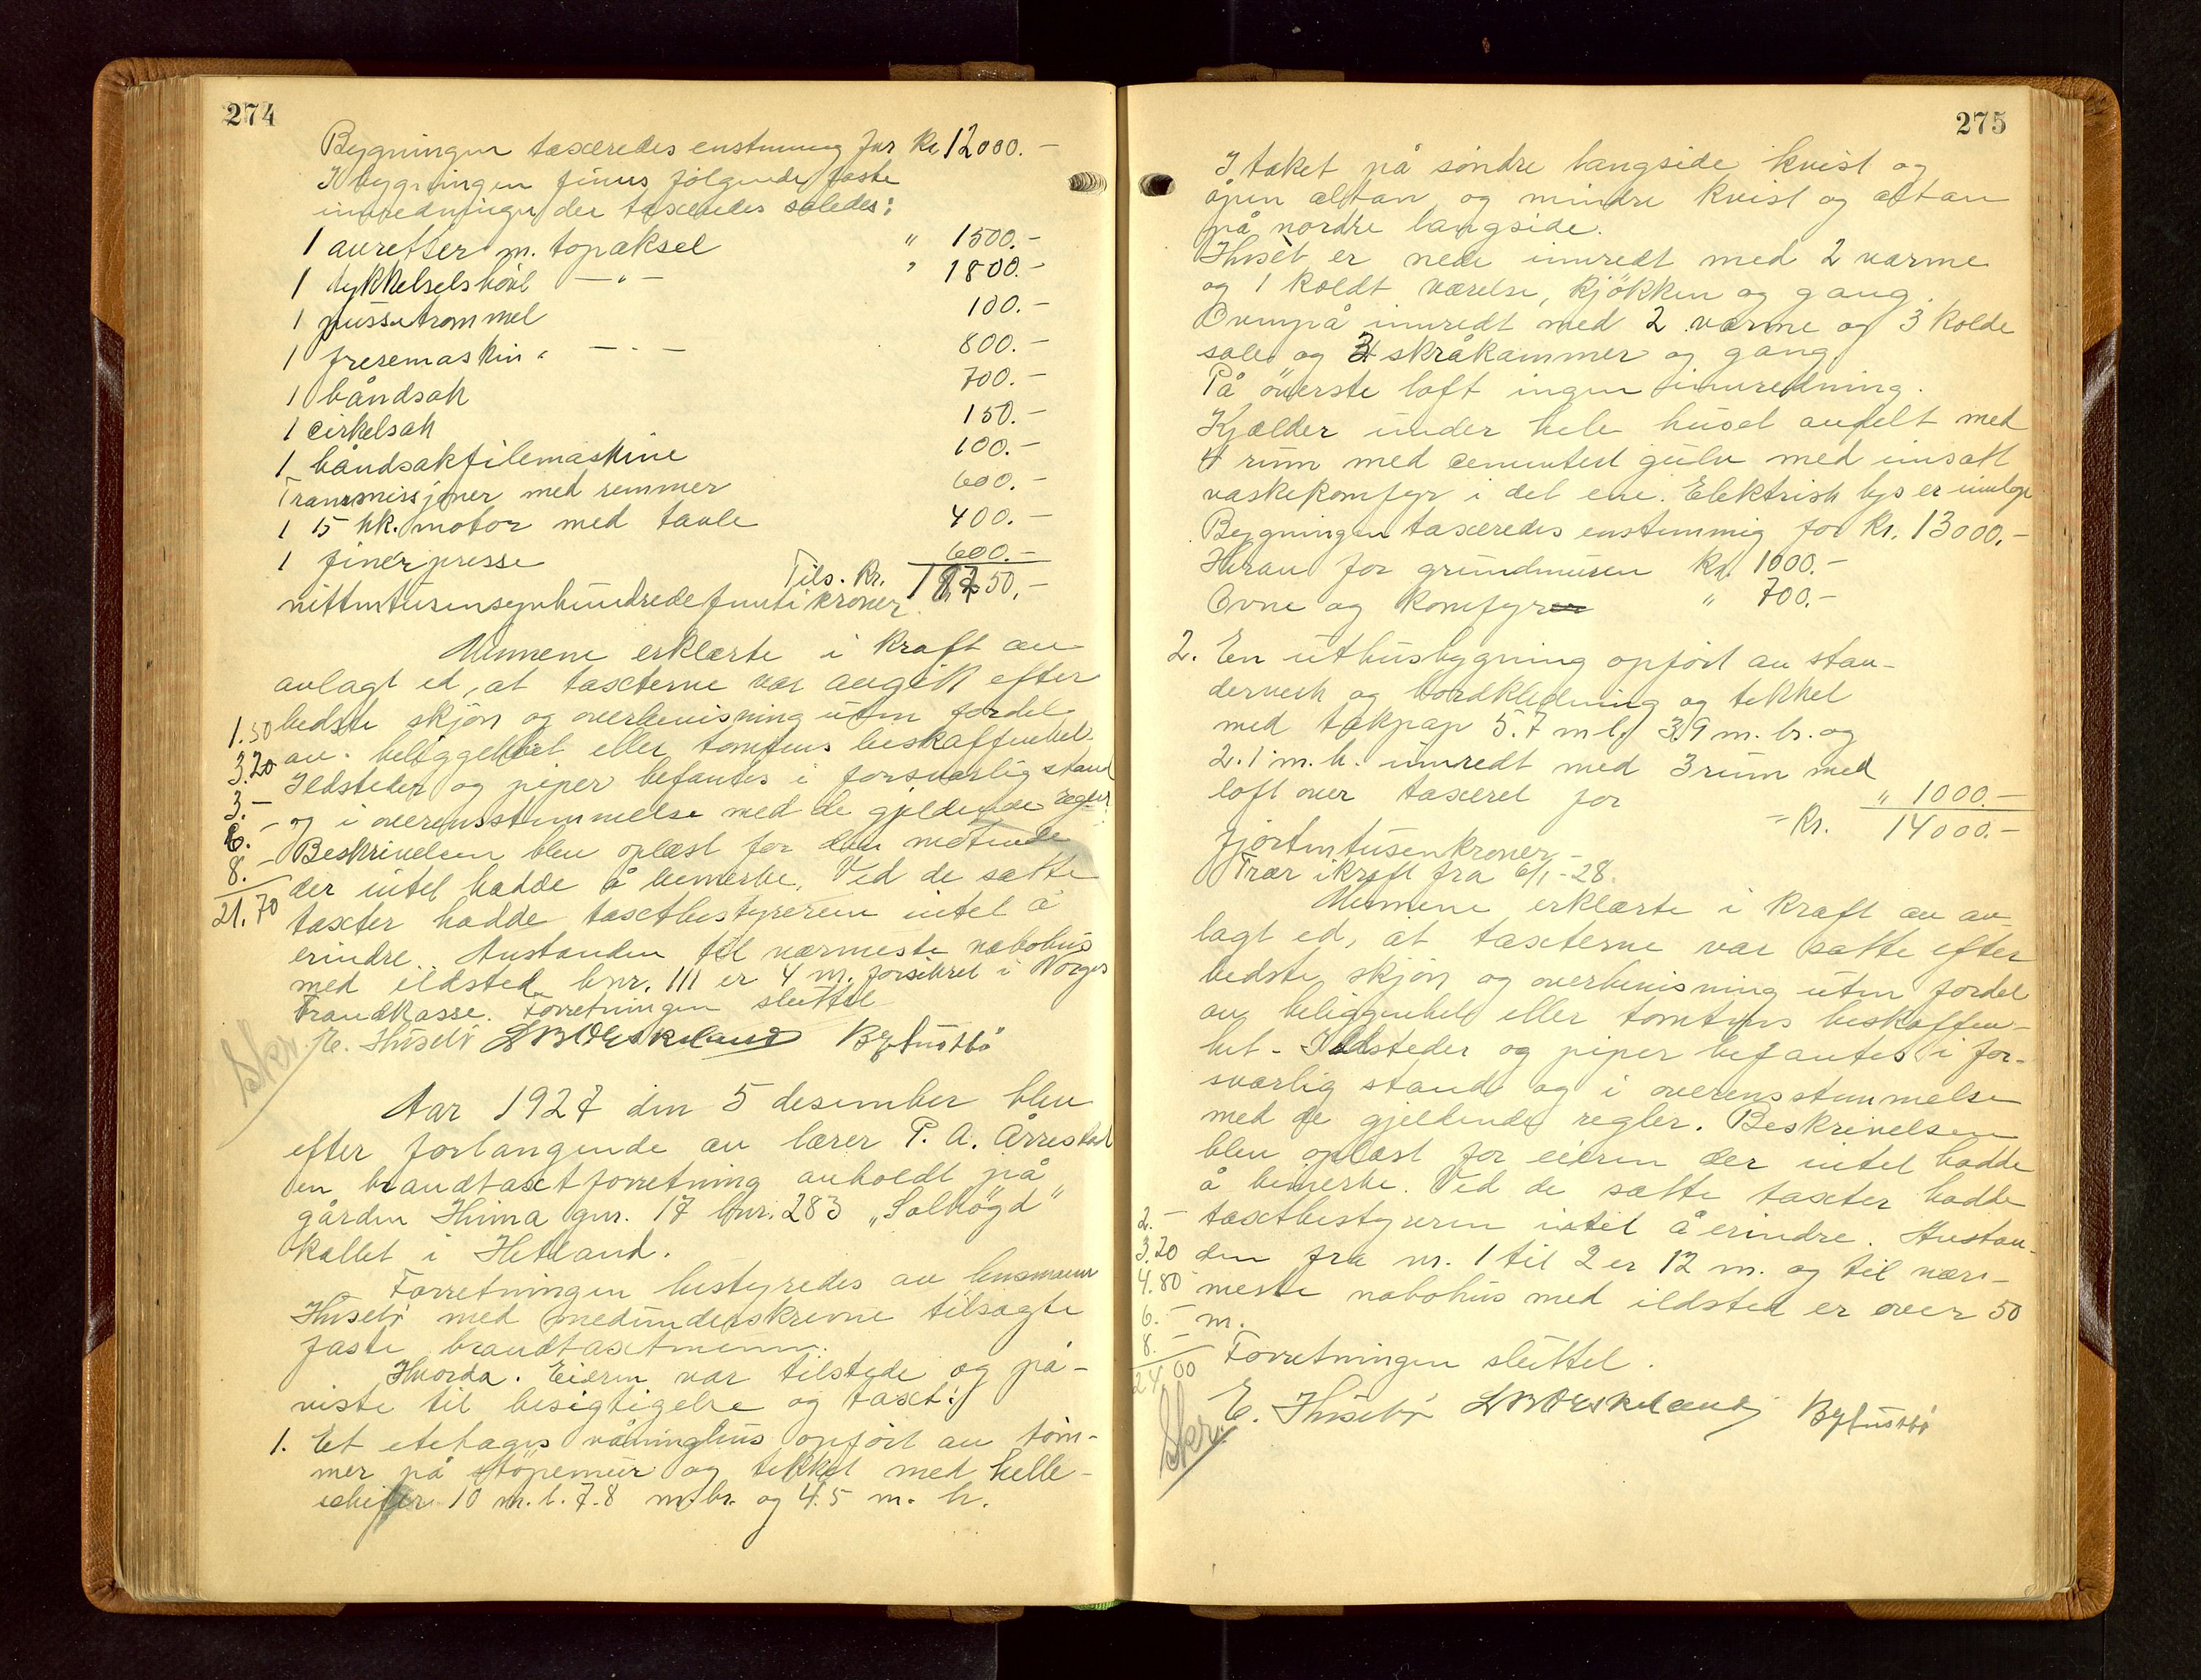 274
Bygningen taxeredes enstemmig for kr 12000.-
I bygningen finns følgende faste
innredninger der taxeredes således:
1 avretter m. topaksel " 1500.-
1 tykkelseshövl -"- " 1800.-
1 pussetrommel 100.-
1 fresemaskin -"- 800.-
1 båndsak 700.-
1 cirkelsak 150.-
1 båndsakfilemaskine 100.-
Transmissjoner med remmer 600.-
1 15 hk. motor med tavle 400.-
1 finérpresse 600.-
Tils. Kr. 18750.-
nittentusensyvhundredefemti kroner
Mennene erklærte i kraft av
avlagt ed, at taxterne var avgitt efter
1.50 bedste skjøn og overbevisning uten fordel
3.20 av beliggenhet eller tomtens beskaffenhet.
Ildsteder og piper befantes i forsvarlig stand
3.- og i overensstemmelse med de gjeldende regler.
6.- Beskrivelsen blev oplæst for den møtende
8.- der intet hadde å bemerke. Ved de satte
21.70 taxter hadde taxtbestyreren intet å
erindre. Avstanden til nærmeste nabohus
med ildsted bnr. 111 er 4 m. forsikret i Norges
Brandkasse. Forretningen sluttet
E. Husebø L B Oeskeland B Gustbø
Skr.
Aar 1927 den 5 desember blev
efter forlangende av lærer P. A. Årrestad
en brandtaxtforretning avholdt på
gården Hinna gnr. 17 bnr. 283 „Solhögd"
kallet i Hetland.
Forretningen bestyredes av lensmann
Husebø med medunderskrevne tilsagte
faste brandtaxtmenn.
Hvorda. Eieren var tilstede og på-
viste til besigtigelse og taxt:
1. Et etetages våninghus opført av töm-
mer på støpemur og tekket med helle-
skifer 10 m. l. 7.8 m. br. og 4.5 m. h.
275
I taket på söndre langside kvist og
åpen altan og mindre kvist og altan
på nordre langside.
Huset er nede innredt med 2 varme
og 1 koldt værelse, kjökken og gang.
Ovenpå innredt med 2 varme og 3 kolde
sale og 3 skråkammer og gang.
På överste loft ingen innredning.
Kjælder under hele huset avdelt med
4 rum med cementert gulv med innsatt
vaskekomfyr i det ene. Elektrisk lys er innlagt
Bygningen taxeredes enstemmig for kr. 13000.-
Herav for grundmuren kr. 1000.-
Ovne og komfyr " 700.-
2. En uthusbygning opført av stan-
derverk og bordkledning og tekket
med takpap 5.7 m l. 3.9 m. br. og
2.1 m. h. innredt med 3 rum med
loft over taxeret for " 1000.-
- Kr. 14000.-
fjortentusenkroner -
Trær i kraft fra 6/1-28.
Mennene erklærte i kraft av av
lagt ed, at taxterne var satte efter
bedste skjøn og overbevisning uten fordel
av beliggenhet eller tomtens beskaffen-
het. Ildsteder og piper befantes i for-
svarlig stand og i overensstemmelse
med de gjeldende regler. Beskrivelsen
blev oplæst for eieren der intet hadde
å bemerke. Ved de satte taxter hadde
2.- taxtbestyreren intet å erindre. Avstan-
3.20 den fra nr. 1 til 2 er 12 m. og til nær-
4.80 meste nabohus med ildsted er over 50
6.- m.
8.- Forretningen sluttet.
24.00
E. Husebø L B Oeskeland B Gustbø
Skr.